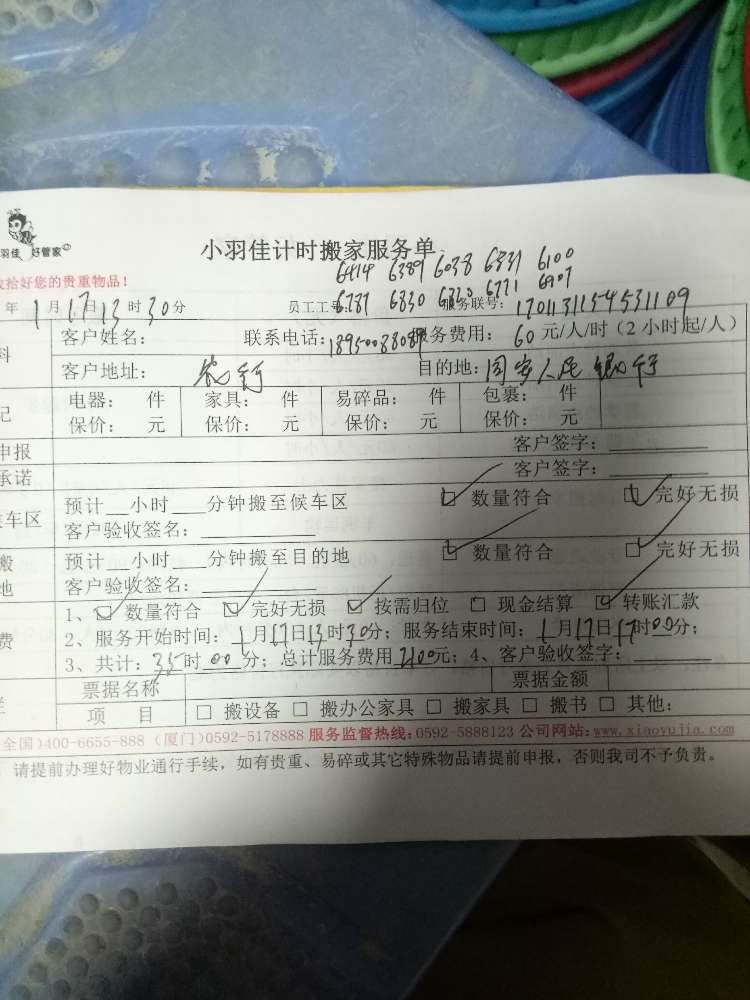 羽佳 好管家
小羽佳计时搬家服务单
收拾好您的贵重物品！
6414 6389 6038 6831 6100
6787 6830 6320 6771 6907
年1月17日13时30分 员工工号： 服务联号：1701131154531109
客户姓名： 联系电话：18950088089 服务费用：60元/人/时（2小时起/人）
客户地址：农行 目的地：国家人民银行
电器： 件 家具： 件 易碎品： 件 包裹： 件
保价： 元 保价： 元 保价： 元 保价： 元
申报 客户签字：
承诺 客户签字：
预计__小时___分钟搬至候车区 ☑ 数量符合 ☑ 完好无损
车区 客户验收签名：
搬 预计__小时___分钟搬至目的地 ☑ 数量符合 ☑ 完好无损
地 客户验收签名：
1、☑ 数量符合 ☑ 完好无损 ☑ 按需归位 □ 现金结算 ☑ 转账汇款
费 2、服务开始时间：1月17日13时30分；服务结束时间：1月17日17时00分；
3、共计：35时00分；总计服务费用2100元；4、客户验收签字：
票据名称 票据金额
项 目 □ 搬设备 □ 搬办公家具 □ 搬家具 □ 搬书 □ 其他：
全国)400-6655-888 (厦门)0592-5178888 服务监督热线:0592-5888123 公司网站:www.xiaoyujia.com
请提前办理好物业通行手续，如有贵重、易碎或其它特殊物品请提前申报，否则我司不予负责。